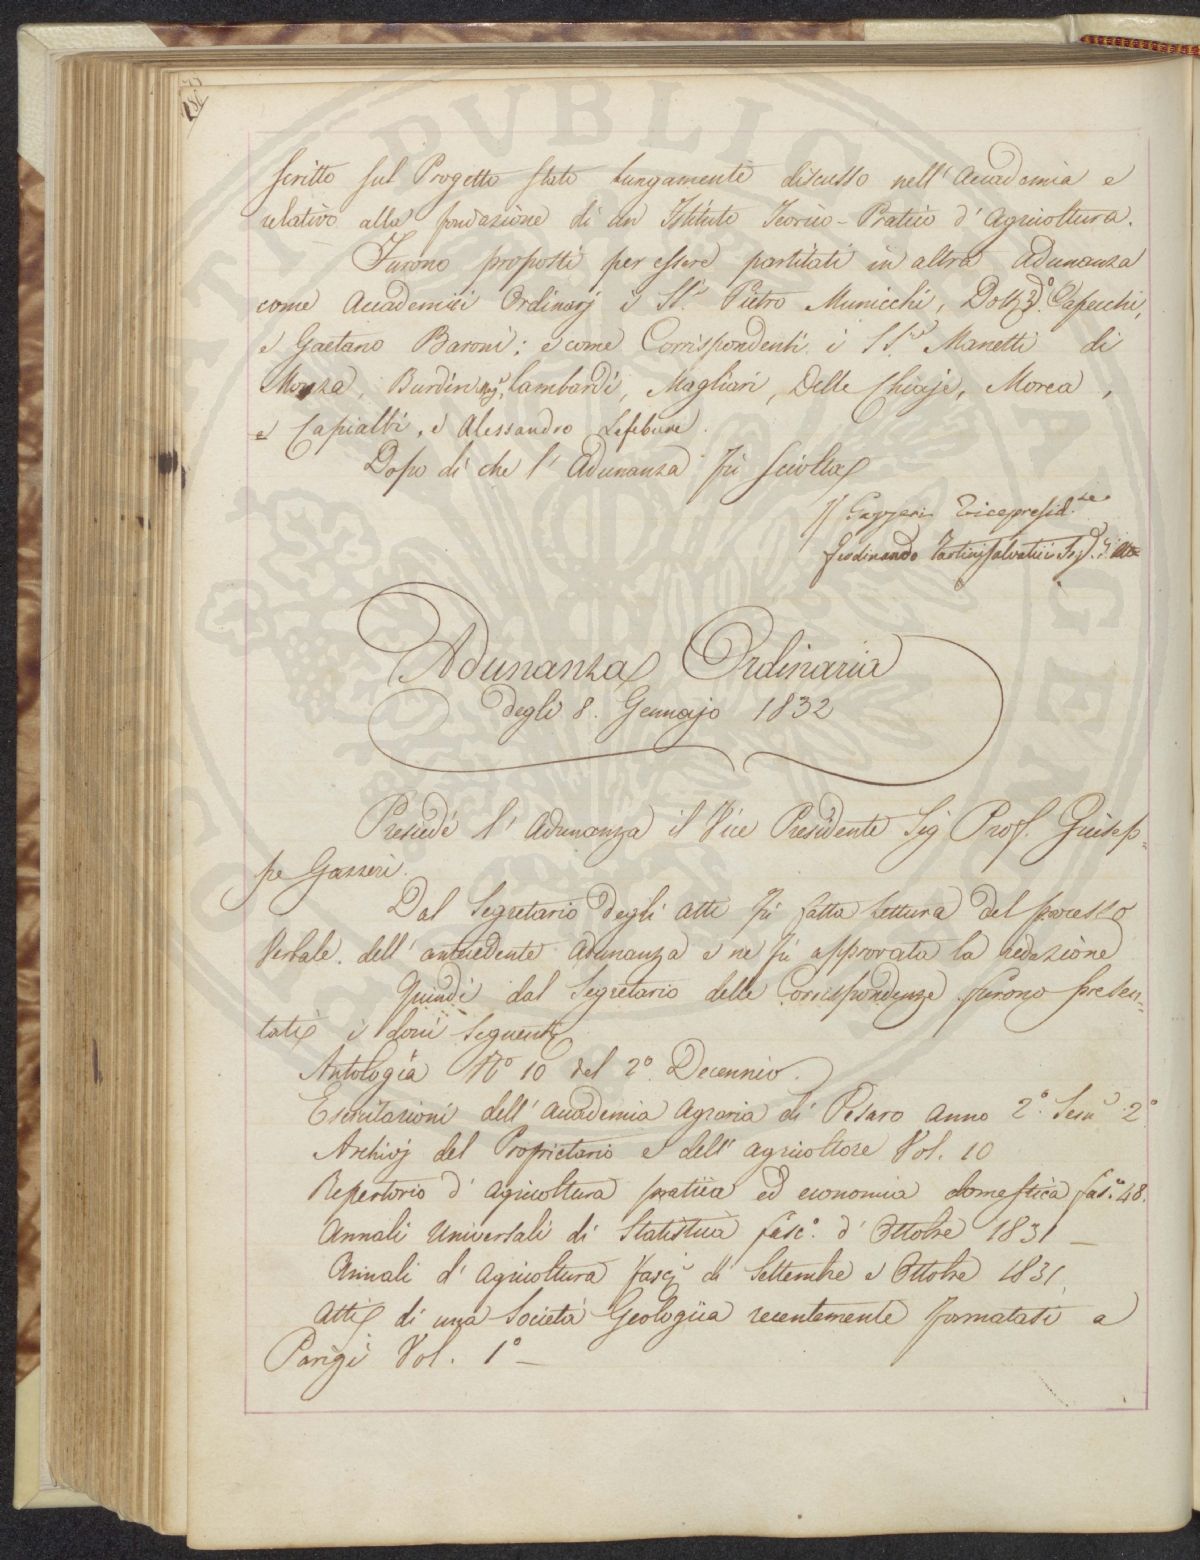 scritto sul Progetto stato lungamente discusso nell'Accademia e
relativo alla fondazione di un Istituto Teorico-Pratico d'Agricoltura.
Furono proposti per essere partitati in altra Adunanza
come Accademici Ordinarj i SS.ri Pietro Municchi, Dott. Capecchi,
e Gaetano Baroni; e come Corrispondenti i SS.ri Manetti di
Monza, Burdin Mag.re, Lombardi, Magliari, Delle Chiaje, Morea,
e Capialbi, e Alessandro Lefebure.
Dopo di che l'Adunanza fù sciolta
G Gazzeri Vicepresid.te
Ferdinando Tartini Salvatici Seg.
Adunanza Ordinaria
degli 8. Gennajo 1832
Presiedè l'Adunanza il Vice Presidente Sig Prof. Giusep-
pe Gazzeri.
Dal Segretario degli Atti fù fatta Lettura del processo
Verbale dell'antecedente Adunanza e ne fù approvata la redazione
Quindi dal Segretario delle Corrispondenze furono presen-
tati i doni seguenti
Antologia N.o 10 del 2.o Decennio.
Esercitazioni dell'Accademia Agraria di Pesaro Anno 2.o Sem.e 2.o
Archivj del Proprietario e dell'Agricoltore Vol. 10
Repertorio d'Agricoltura pratica ed economia domestica fas.o 48.
Annali Universali di Statistica fasc.o d'Ottobre 1831 —
Annali d'Agricoltura fasc.i di Settembre e Ottobre 1831
Atti di una Società Geologica recentemente formatasi a
Parigi Vol. 1.o —